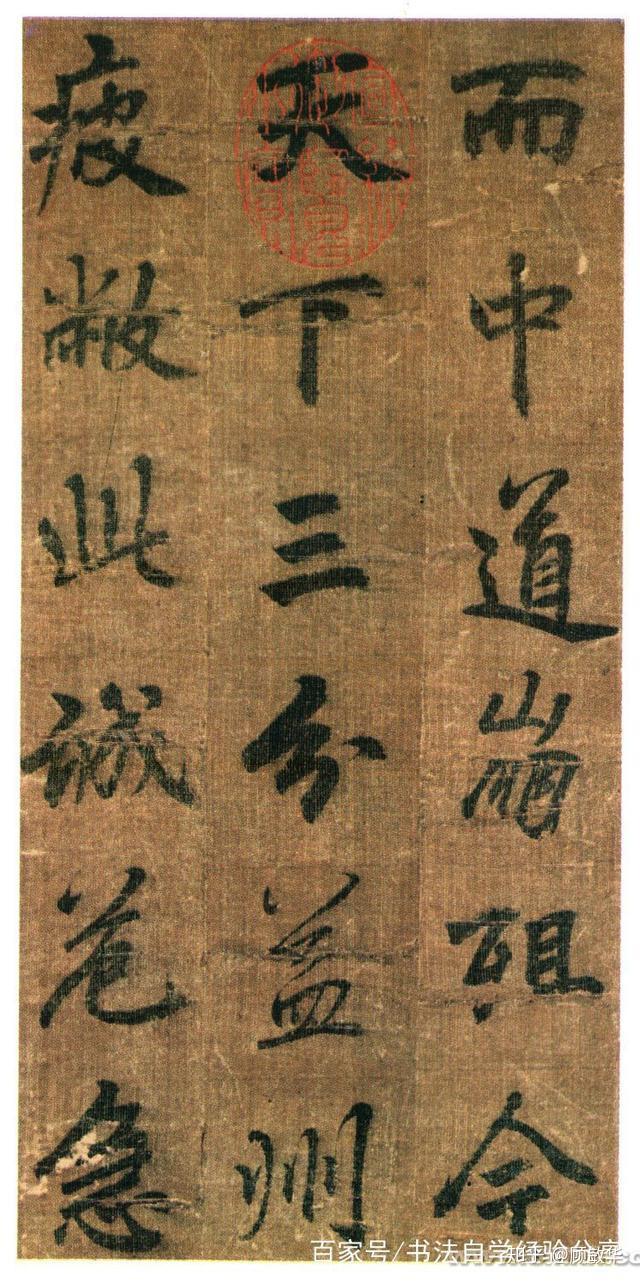 而中道崩殂今
天下三分益州
疲敝此诚危急
百家号/书法自学经验分享
知乎 @顾敏华